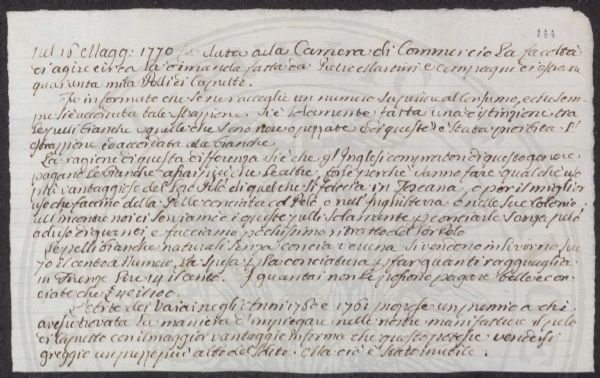 244
Nel 15 Magg: 1770 fu data alla Camera di Commercio la facoltà
di agire circa la dimanda fatta da Pietro Martini e Compagni di estrarre
quaranta mila Pelli di Capretto.
Fu informato che se ne raccoglie un numero superiore al Consumo, e che sem-
pre si è accordata tale estrazione. Si è solamente fatta una distinzione tra
le pelli bianche e quelle che sono nere o pezzate e di queste è stata proibita l'
estrazione ed accordata alle bianche.
La ragione di questa differenza si è che gl'Inglesi compratori di questo genere
pagano le bianche a più che le altre, forse perchè sanno fare qualche uso
più vantaggioso del loro Pelo di quel che si faccia in Toscana, o per il miglior
uso che faccino della Pelle conciata col Pelo o nell'Inghilterra o nelle sue Colonie,
nel mentre noi ci serviamo di queste pelli solamente per conciarle senza pelo
ad uso di guanti e facciamo pochissimo ritratto del loro Pelo
Le pelli bianche naturali senza concia veruna si vendono in Livorno
70 il cento a Numero. La spesa per la conciatura per far guanti ragguaglia
in Firenze Lire 14 il cento. I guantai non le possono pagare belle e con-
ciate che
L'Arte dei Vaiai negli Anni 1760 e 1761 propose un premio a chi
avesse trovata la maniera d'impiegare nelle nostre manifatture il pelo
di Capretto con il maggior vantaggio in forma che questo potesse vendersi
greggio un prezzo più alto del solito. Ma ciò è stato inutile.